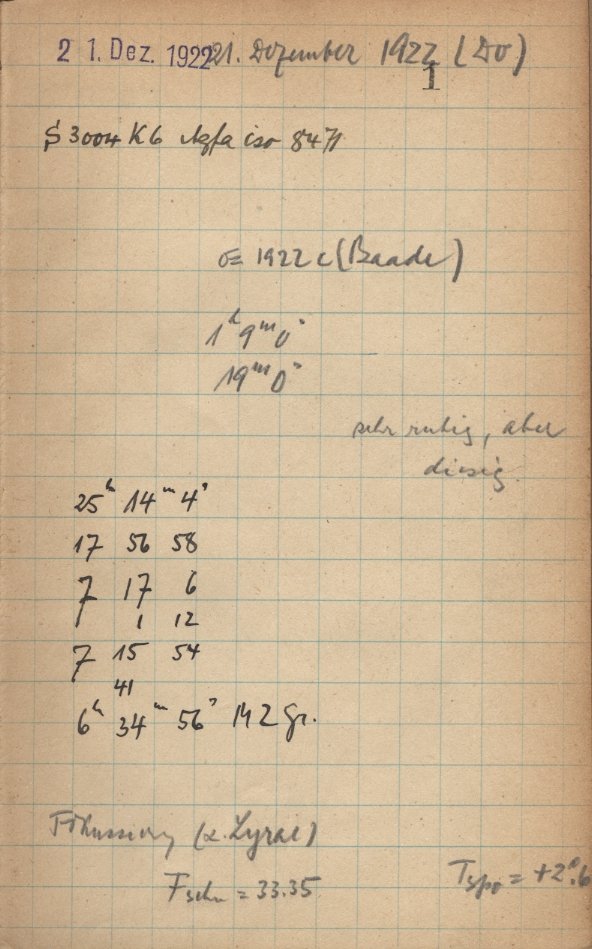 21. Dez. 1922 21. Dezember 1922 (Do)
1
S 3004 K6 Agfa iso 8471
1922 c (Baade)
1ʰ 9ᵐ 0ˢ
19ᵐ 0ˢ
sehr ruhig, aber
diesig.
25ʰ 14ᵐ 4ˢ
17 56 58
7 17 6
1 12
7 15 54
41
6ʰ 34ᵐ 56ˢ M2 Gr.
Fokussierung (α Lyrae)
F = 33.35
T = +2°.6